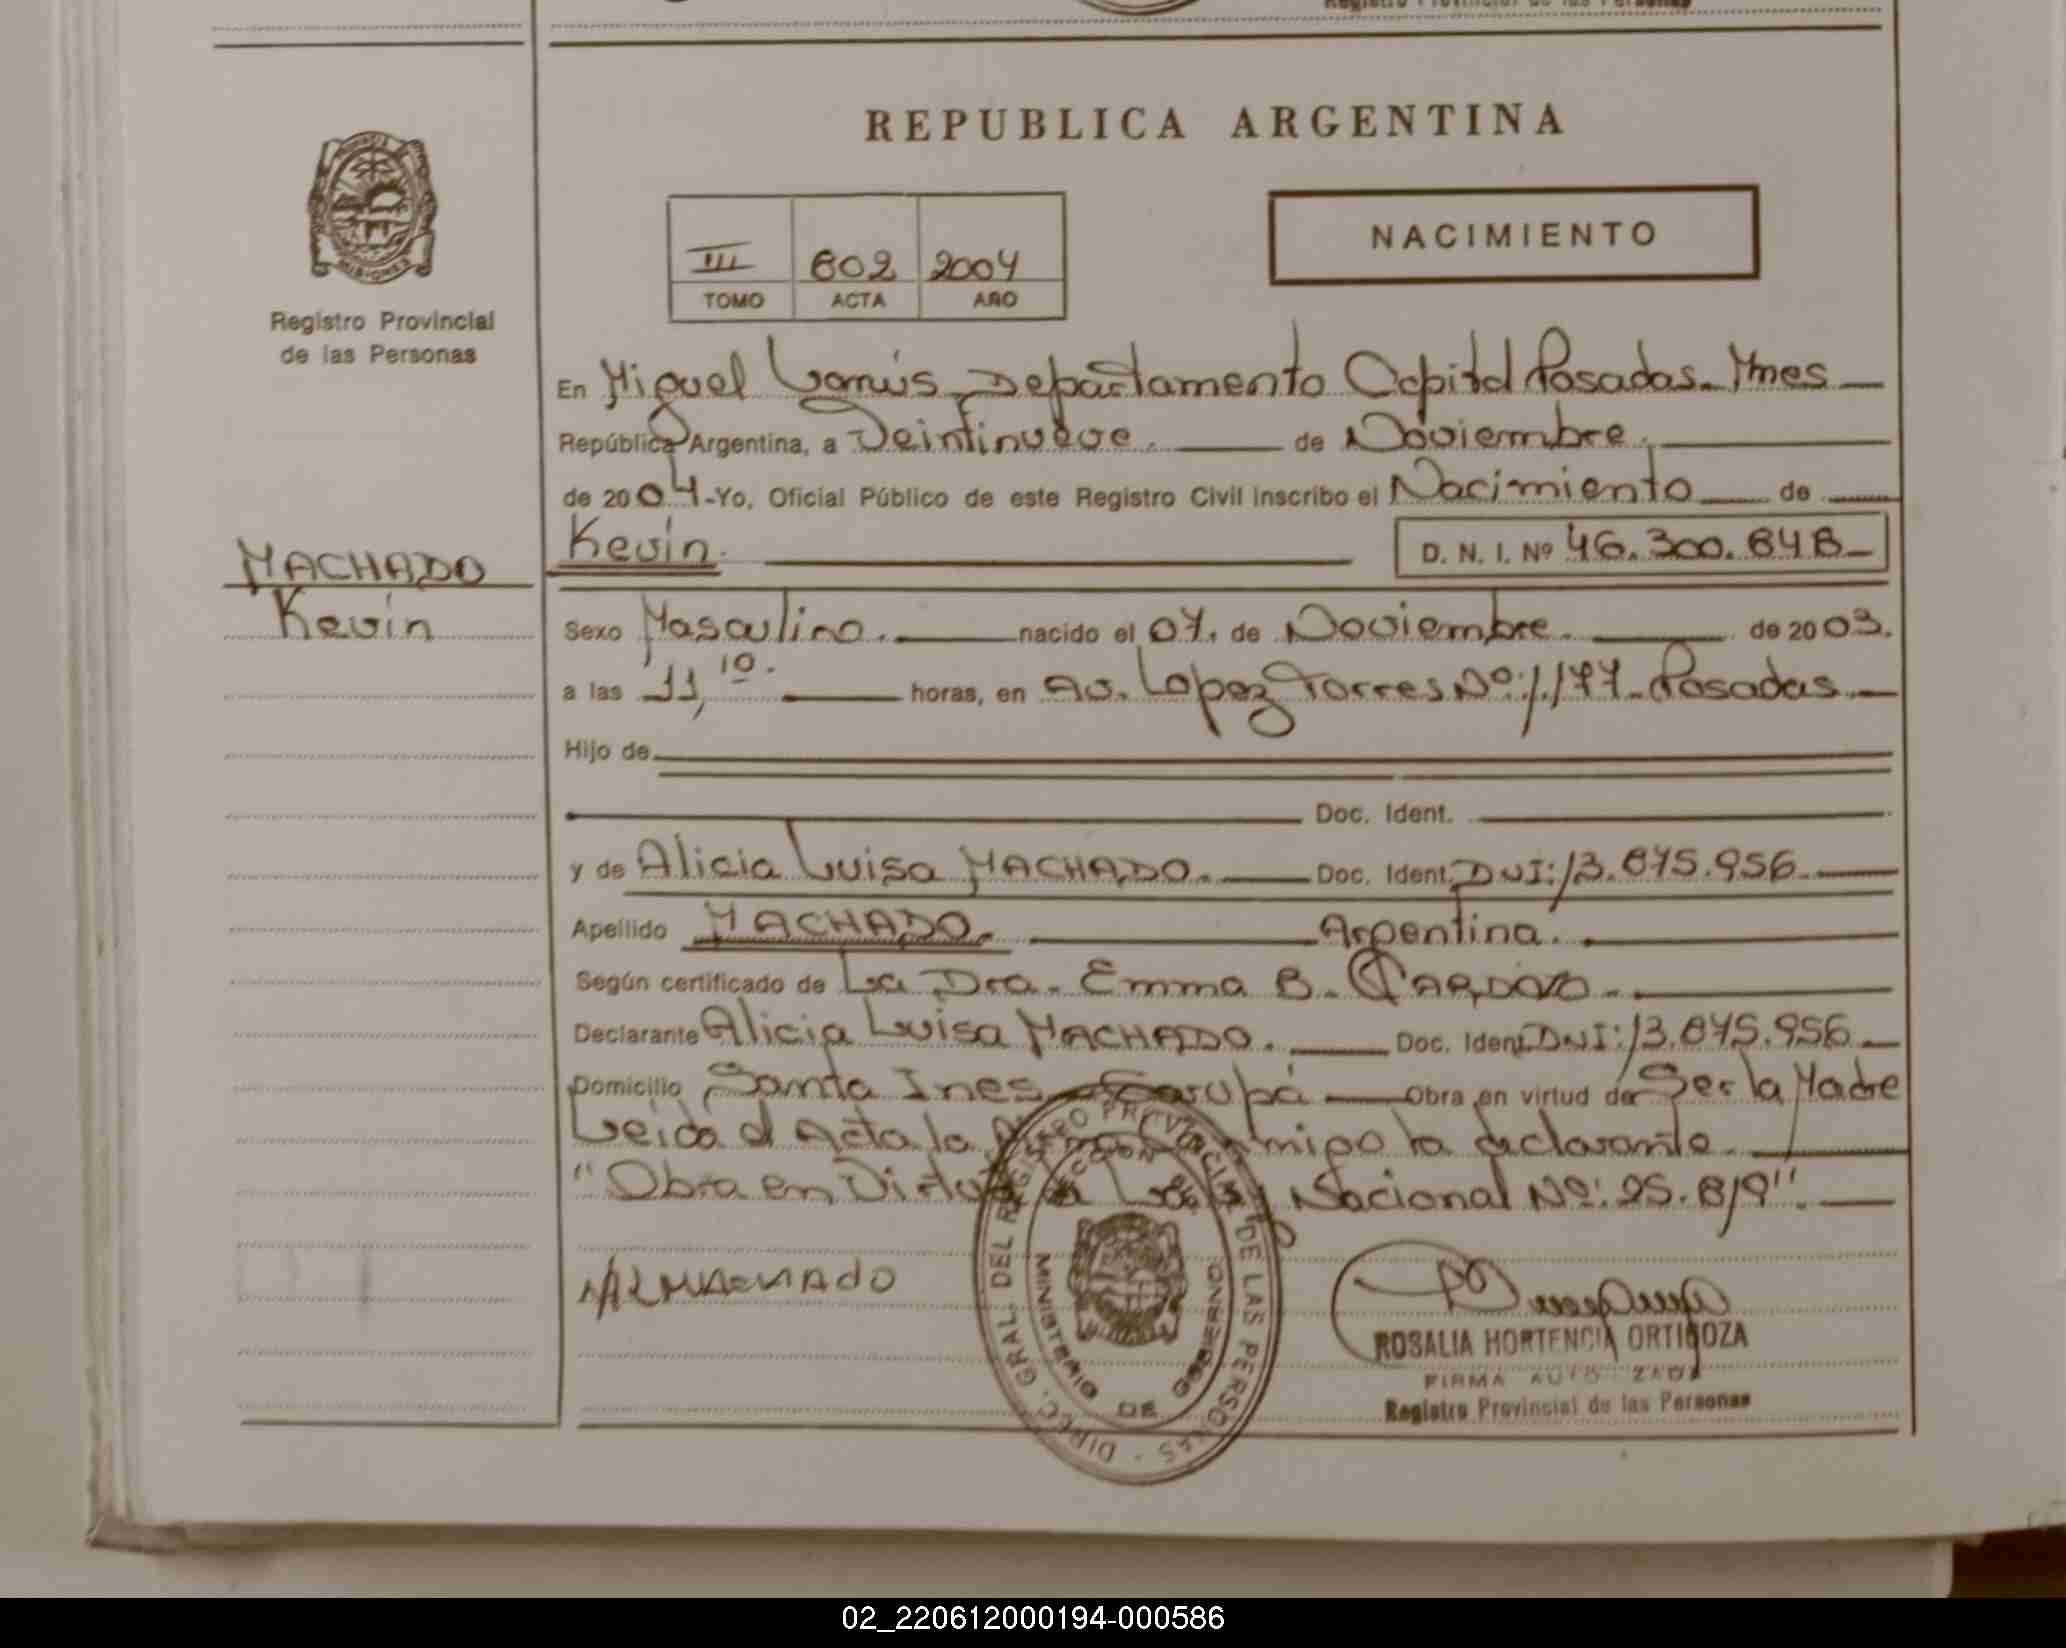 Registro Provincial de las Personas
REPUBLICA ARGENTINA
NACIMIENTO
III 602 2004
TOMO ACTA AÑO
MISIONES
Registro Provincial
de las Personas
MACHADO
Kevin
En Miguel Lanús Departamento Capital Posadas. Mnes
República Argentina, a Veintinueve. de Noviembre.
de 2004 -Yo, Oficial Público de este Registro Civil inscribo el Nacimiento de
Kevin. D. N. I. Nº 46.300.848
Sexo Masculino. nacido el 07. de Noviembre. de 2003.
a las 11,10. horas, en Av. Lopez Torres Nº:1.177- Posadas
Hijo de
Doc. Ident.
y de Alicia Luisa MACHADO. Doc. Ident. DNI:13.875.956
Apellido MACHADO. Argentina.
Según certificado de La Dra. Emma B.
Declarante Alicia Luisa MACHADO. Doc. Ident. DNI:13.875.956
Domicilio Santa Ines Garupá Obra en virtud de Ser la Madre
Leida el Acta la conmigo la declarante.
"Obra en Virtud de Ley Nacional Nº: 25.819".
ALMACHADO
DIREC. GRAL. DEL REGISTRO PROVINCIAL DE LAS PERSONAS
MINISTERIO DE GOBIERNO
ROSALIA HORTENCIA ORTIGOZA
FIRMA AUTORIZADA
Registro Provincial de las Personas
02_220612000194-000586